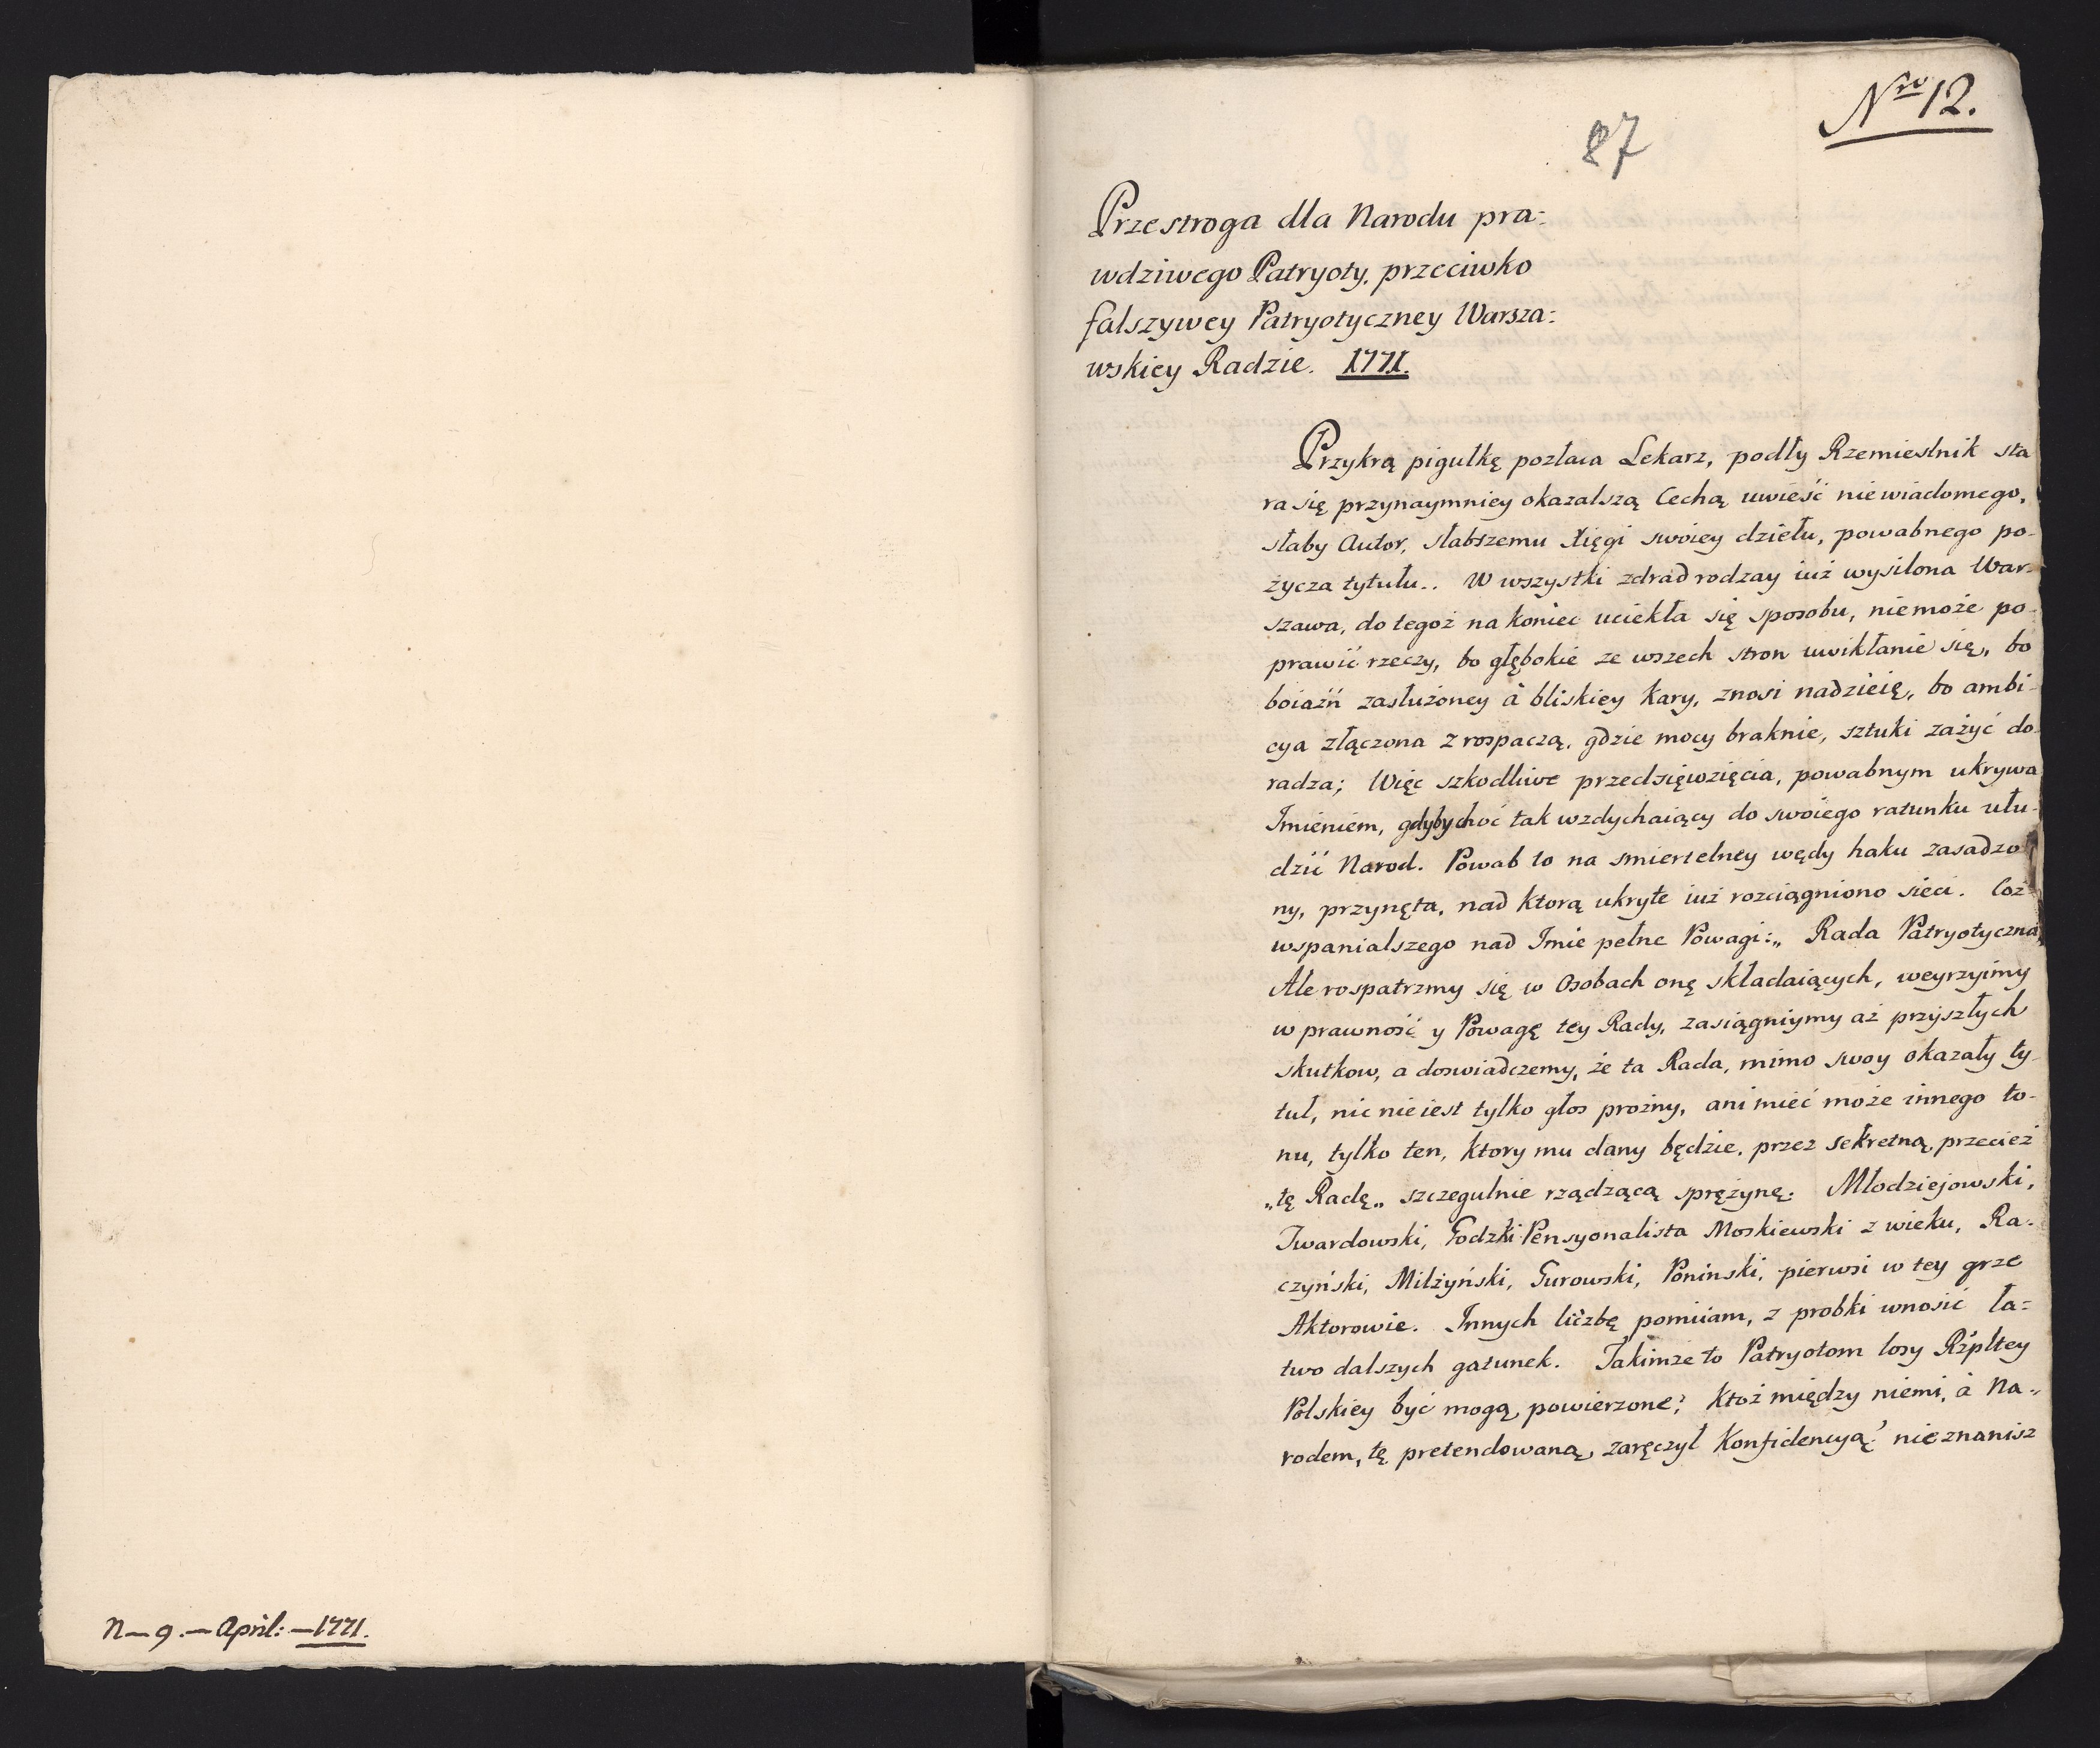 n — 9. — April: — 1771.
Nro 12.
87
Przestroga dla Narodu pra:
wdziwego Patryoty, przeciwko
falszywey Patryotyczney Warsza:
wskiey Radzie. 1771.
Przykrą pigułkę pozłaca Lekarz, podły Rzemieslnik sta
ra się przynaymniey okazalszą Cechą uwieść niewiadomego,
słaby Autor, słabszemu Xięgi swoiey dziełu, powabnego po-
życza tytułu.. W wszystki zdrad rodzay iuż wysilona War-
szawa, do tegoż na koniec uciekła się sposobu, niemoże po-
prawić rzeczy, bo głębokie ze wszech stron uwikłanie się, bo
boiaźń zasłużoney à bliskiey kary, znosi nadzieię, bo ambi-
cya złączona z rospaczą, gdzie mocy braknie, sztuki zażyć do-
radza; Więc szkodliwe przedsięwzięcia, powabnym ukrywa
Imieniem, gdyby choć tak wzdychaiący do swoiego ratunku ułu-
dzić Narod. Powab to na smiertelney wędy haku zasadzo
ny, przynęta, nad ktorą ukryte iuż rozciągniono sieci. Coż
wspanialszego nad Imie pełne Powagi:„ Rada Patryotyczna
Ale rospatrzmy się w Osobach onę składaiących, weyrzyimy
w prawność y Powagę tey Rady, zasiągniymy aż przyszłych
skutkow, a doswiadczemy, że ta Rada, mimo swoy okazały ty-
tuł, nic nieiest tylko głos prożny, ani mieć może innego to-
nu, tylko ten, ktory mu dany będzie, przez sekretną przecież
„tę Radę„ szczegulnie rządzącą sprężynę. Młodziejowski,
Twardowski, Godzki Pensyonalista Moskiewski z wieku, Ra-
czyński, Milżyński, Gurowski, Poninski, pierwsi w tey grze
Aktorowie. Innych liczbę pomiiam, z probki wnosić ła=
two dalszych gatunek. Takimże to Patryotom losy Rzpltey
Polskiey być mogą powierzone? Ktoż między niemi, à Na-
rodem, tę pretendowaną, zaręczył Konfidencyą? nieznanisz